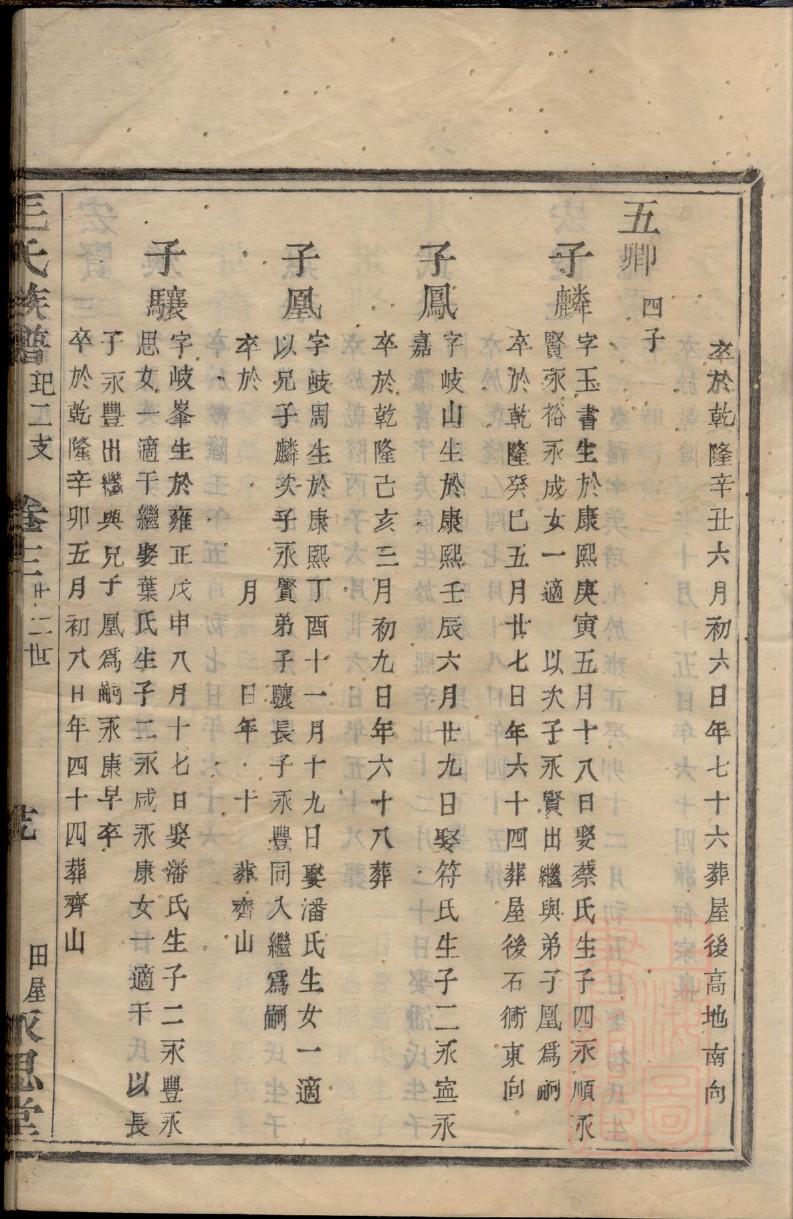 卒於乾隆辛丑六月初六日年七十六葬屋後高地南向
五卿 四子
子麟 字玉書生於康熙庚寅五月十八日娶蔡氏生子四永順永
賢永裕永成女一適 以次子永賢出繼與弟子凰為嗣
卒於乾隆癸巳五月廿七日年六十四葬屋後石衕東向
子鳳 字岐山生於康熙壬辰六月廿九日娶符氏生子二永寍永
嘉
卒於乾隆己亥三月初九日年六十八葬
子凰 字岐周生於康熙丁酉十一月十九日娶潘氏生女一適
以兄子麟次子永賢弟子驤長子永豐同入繼為嗣
卒於 月 日年 十 葬齊山
子驤 字岐峯生於雍正戊申八月十七日娶潘氏生子二永豐永
思女一適干繼娶葉氏生子二永咸永康女一適干氏以長
子永豐出繼與兄子凰為嗣永康早卒
卒於乾隆辛卯五月初八日年四十四葬齊山
毛氏族譜 玘二支 卷三 廿二世 田屋永思堂